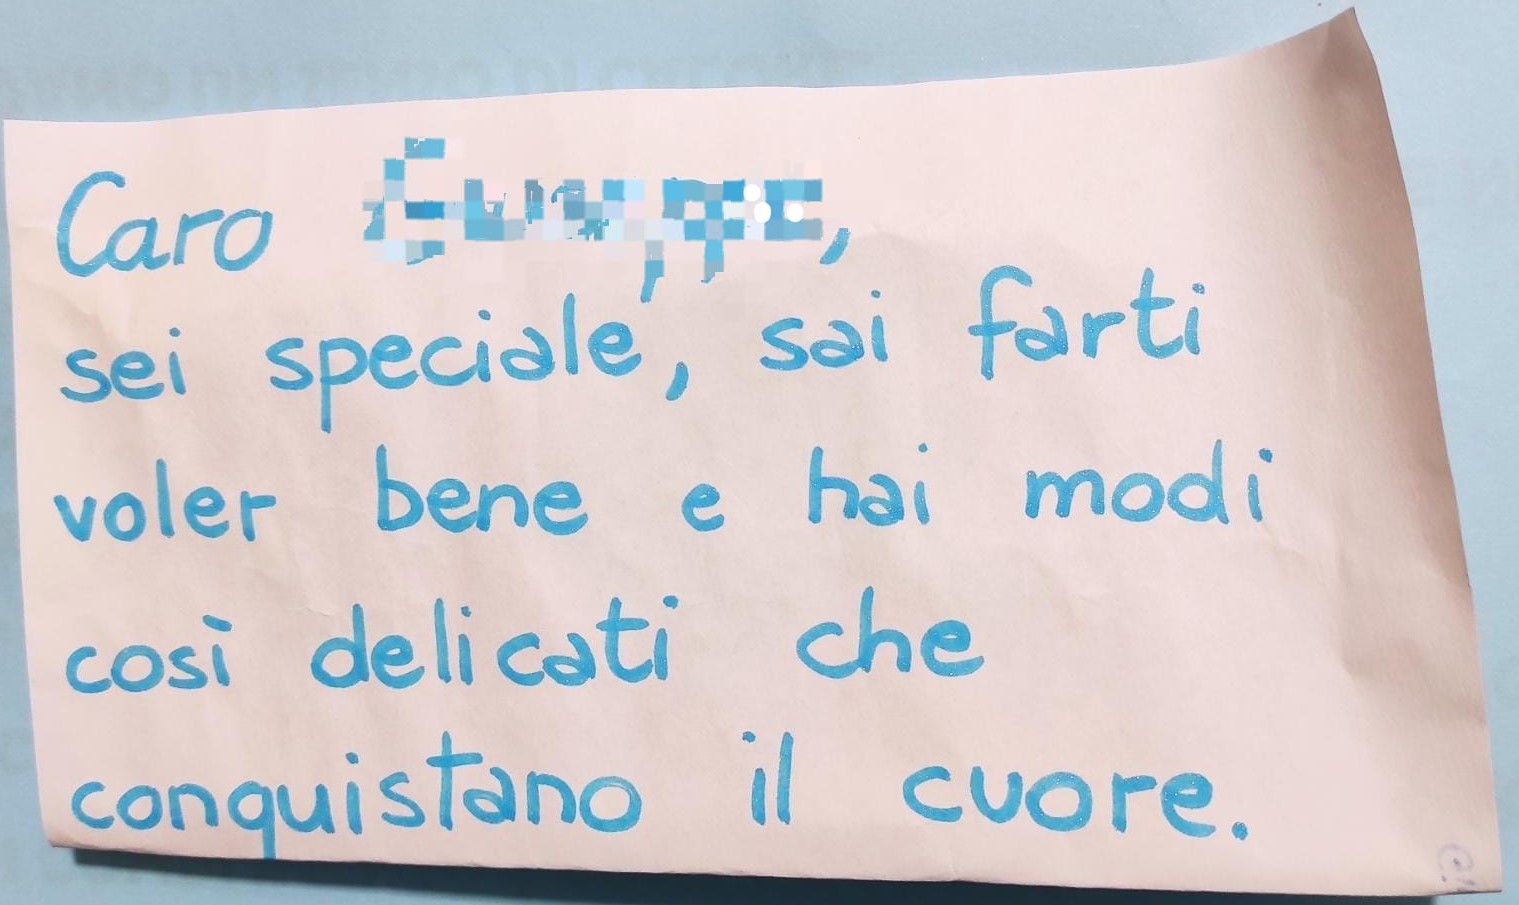 Caro ,
sei speciale, sai farti
voler bene e hai modi
così delicati che
conquistano il cuore.